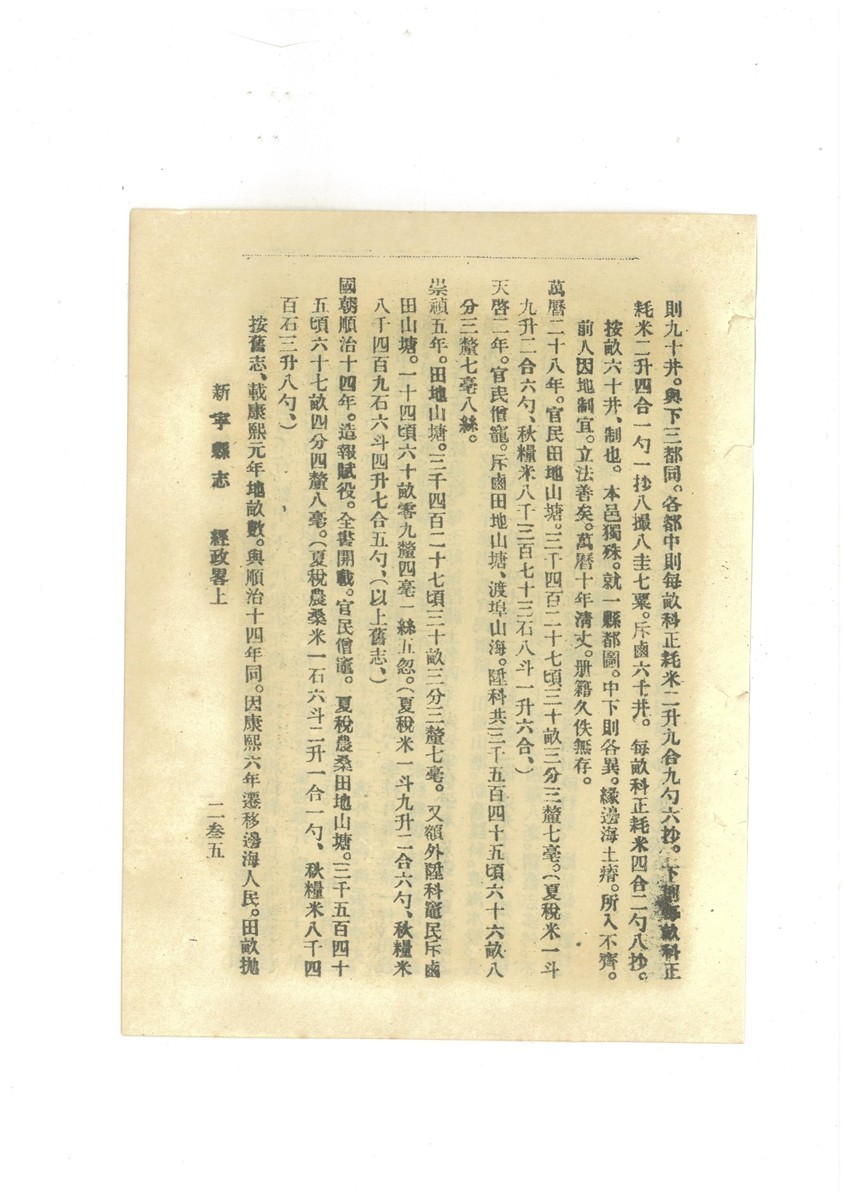 則九十井。與下三都同。各都中則每畝科正耗米二升九合九勺六抄。下則每畝科正
耗米二升四合一勺一抄八撮八圭七粟。斥鹵六十井。每畝科正耗米四合二勺八抄。
按畝六十井、制也。本邑獨殊。就一縣都圖。中下則各異。緣邊海土瘠。所入不齊。
前人因地制宜。立法善矣。萬曆十年清丈。册籍久佚無存。
萬曆二十八年。官民田地山塘。三千四百二十七頃三十畝三分三釐七毫。（夏稅米一斗
九升二合六勺、秋糧米八千三百七十三石八斗一升六合、）
天啓二年。官民僧竈。斥鹵田地山塘、渡埠山海。陞科共三千五百四十五頃六十六畝八
分三釐七毫八絲。
崇禎五年。田地山塘。三千四百二十七頃三十畝三分三釐七毫。又額外陞科竈民斥鹵
田山塘。一十四頃六十畝零九釐四毫一絲五忽。（夏稅米一斗九升二合六勺、秋糧米
八千四百九石六斗四升七合五勺、（以上舊志、）
國朝順治十四年。造報賦役。全書開載。官民僧竈。夏稅農桑田地山塘。三千五百四十
五頃六十七畝四分四釐八毫。（夏稅農桑米一石六斗二升一合一勺、秋糧米八千四
百石三升八勺、）
按舊志、載康熙元年地畝數。與順治十四年同。因康熙六年遷移邊海人民。田畝拋
新寧縣志 經政畧上 二叁五